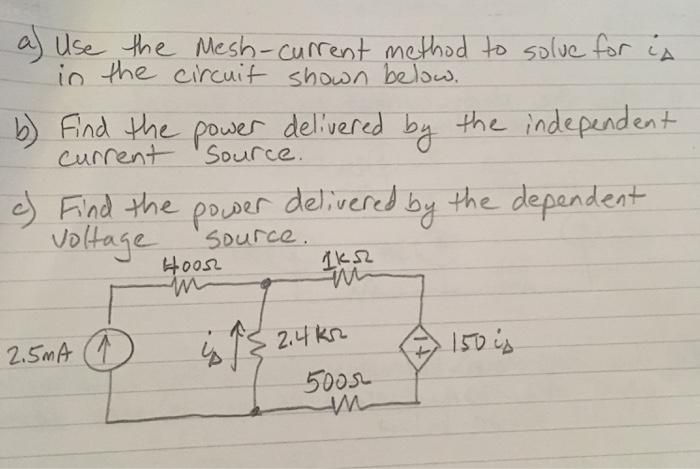 a) Use the Mesh-current method to solve for iΔ
in the circuit shown below.
b) Find the power delivered by the independent
current source.
c) Find the power delivered by the dependent
voltage source.
400Ω 1kΩ
2.5mA iΔ 2.4kΩ 150 iΔ
500Ω